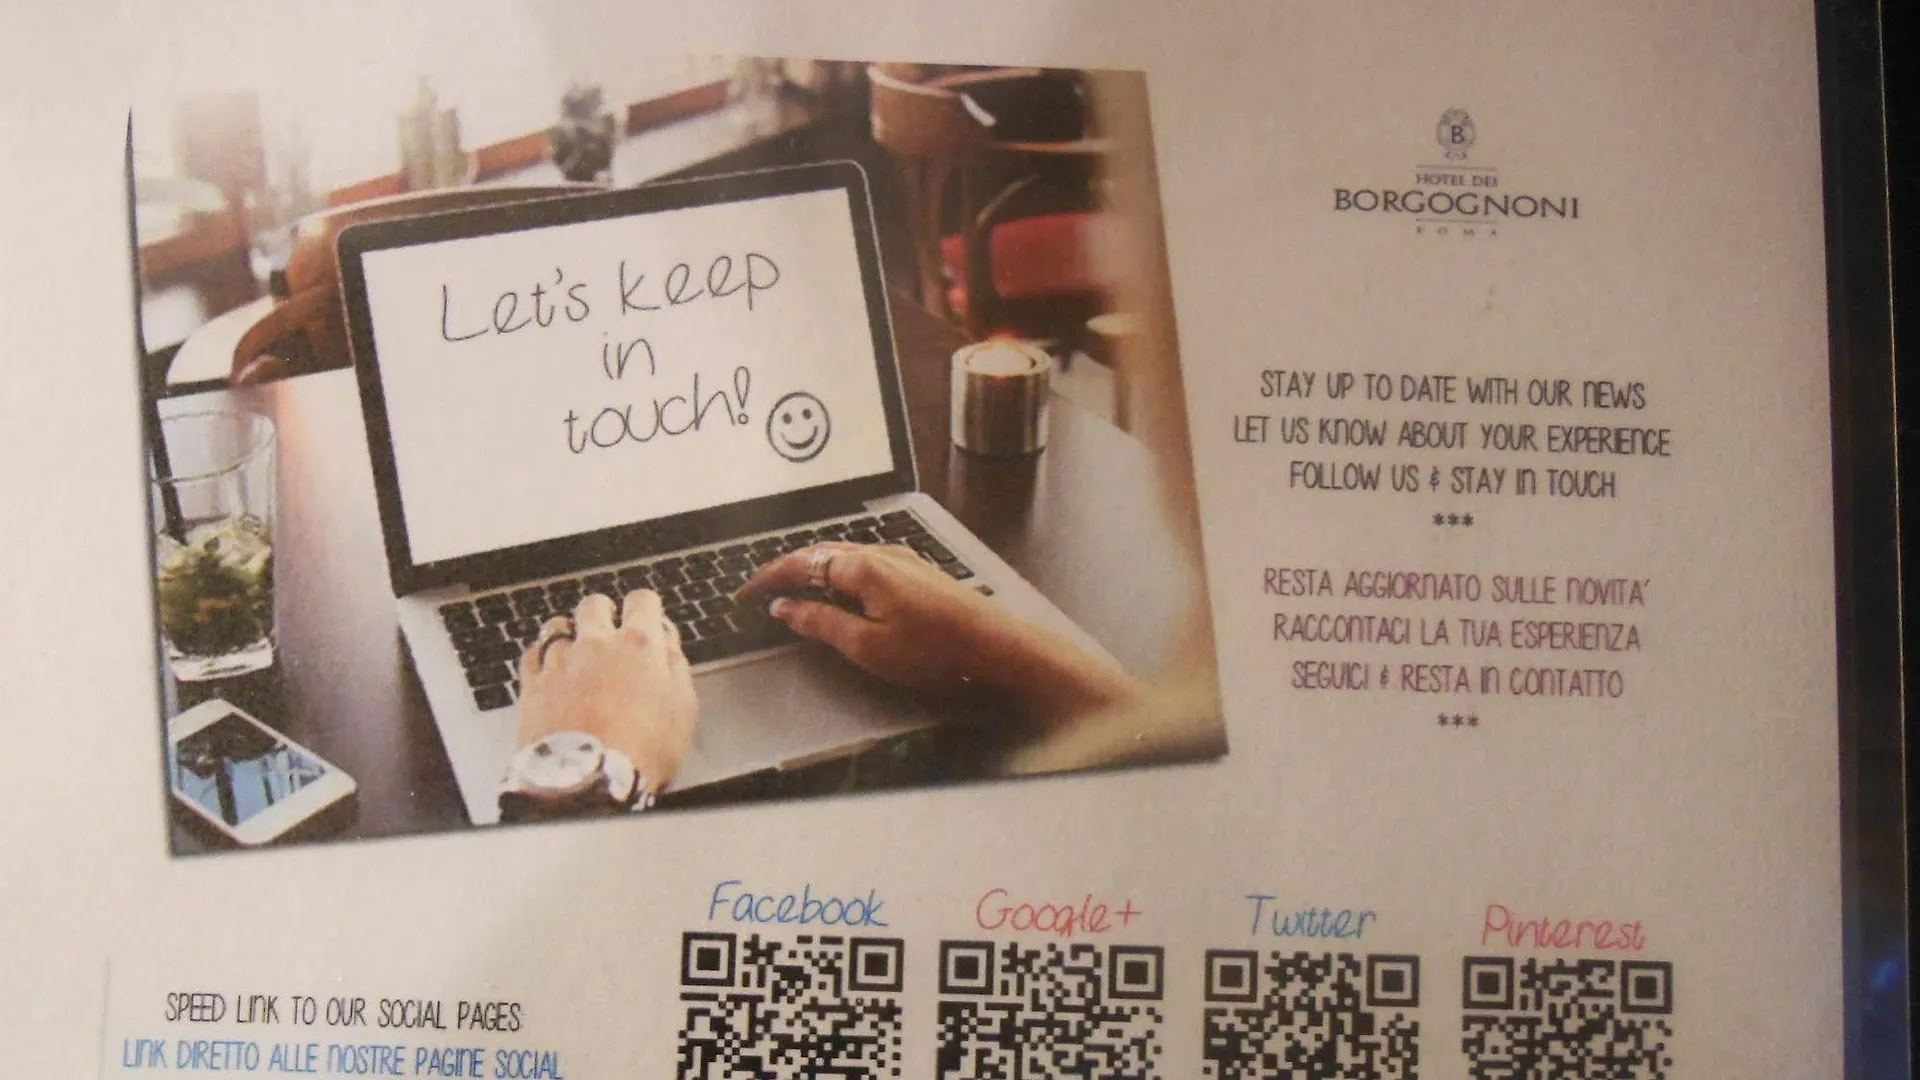 Let's keep
in
touch!
B
HOTEL DEI
BORGOGNONI
ROMA
STAY UP TO DATE WITH OUR NEWS
LET US KNOW ABOUT YOUR EXPERIENCE
FOLLOW US & STAY IN TOUCH
***
RESTA AGGIORNATO SULLE NOVITA'
RACCONTACI LA TUA ESPERIENZA
SEGUICI & RESTA IN CONTATTO
***
Facebook
Google+
Twitter
Pinterest
SPEED LINK TO OUR SOCIAL PAGES
LINK DIRETTO ALLE NOSTRE PAGINE SOCIAL